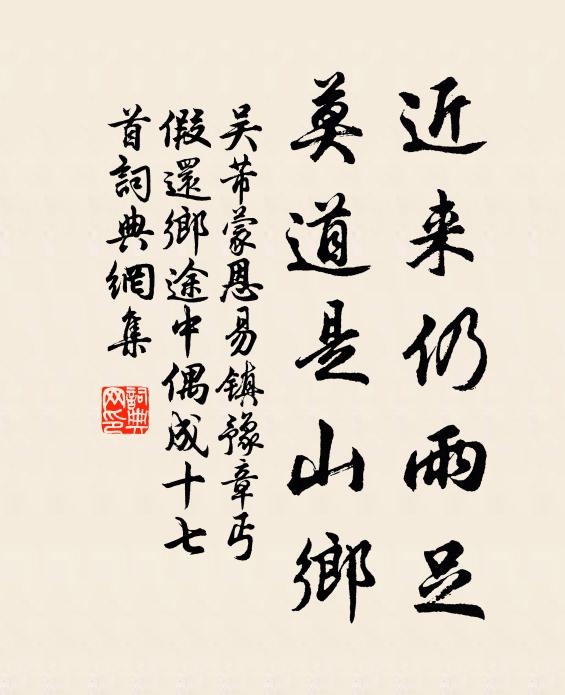 近来仍雨足
莫道是山鄉
吴芾蒙恩易鎮豫章丐
假還鄉途中偶成十七
首詞典網集
詞典网印